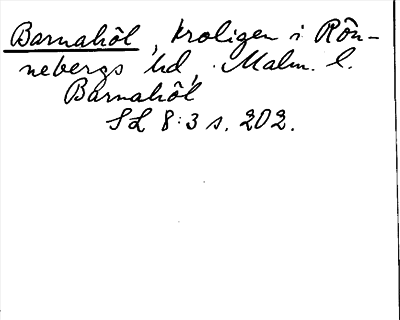 Barnahöl, troligen i Rön-
nebergs hd, Malm. l.
Barnahöl
SL 8:3 s. 202.